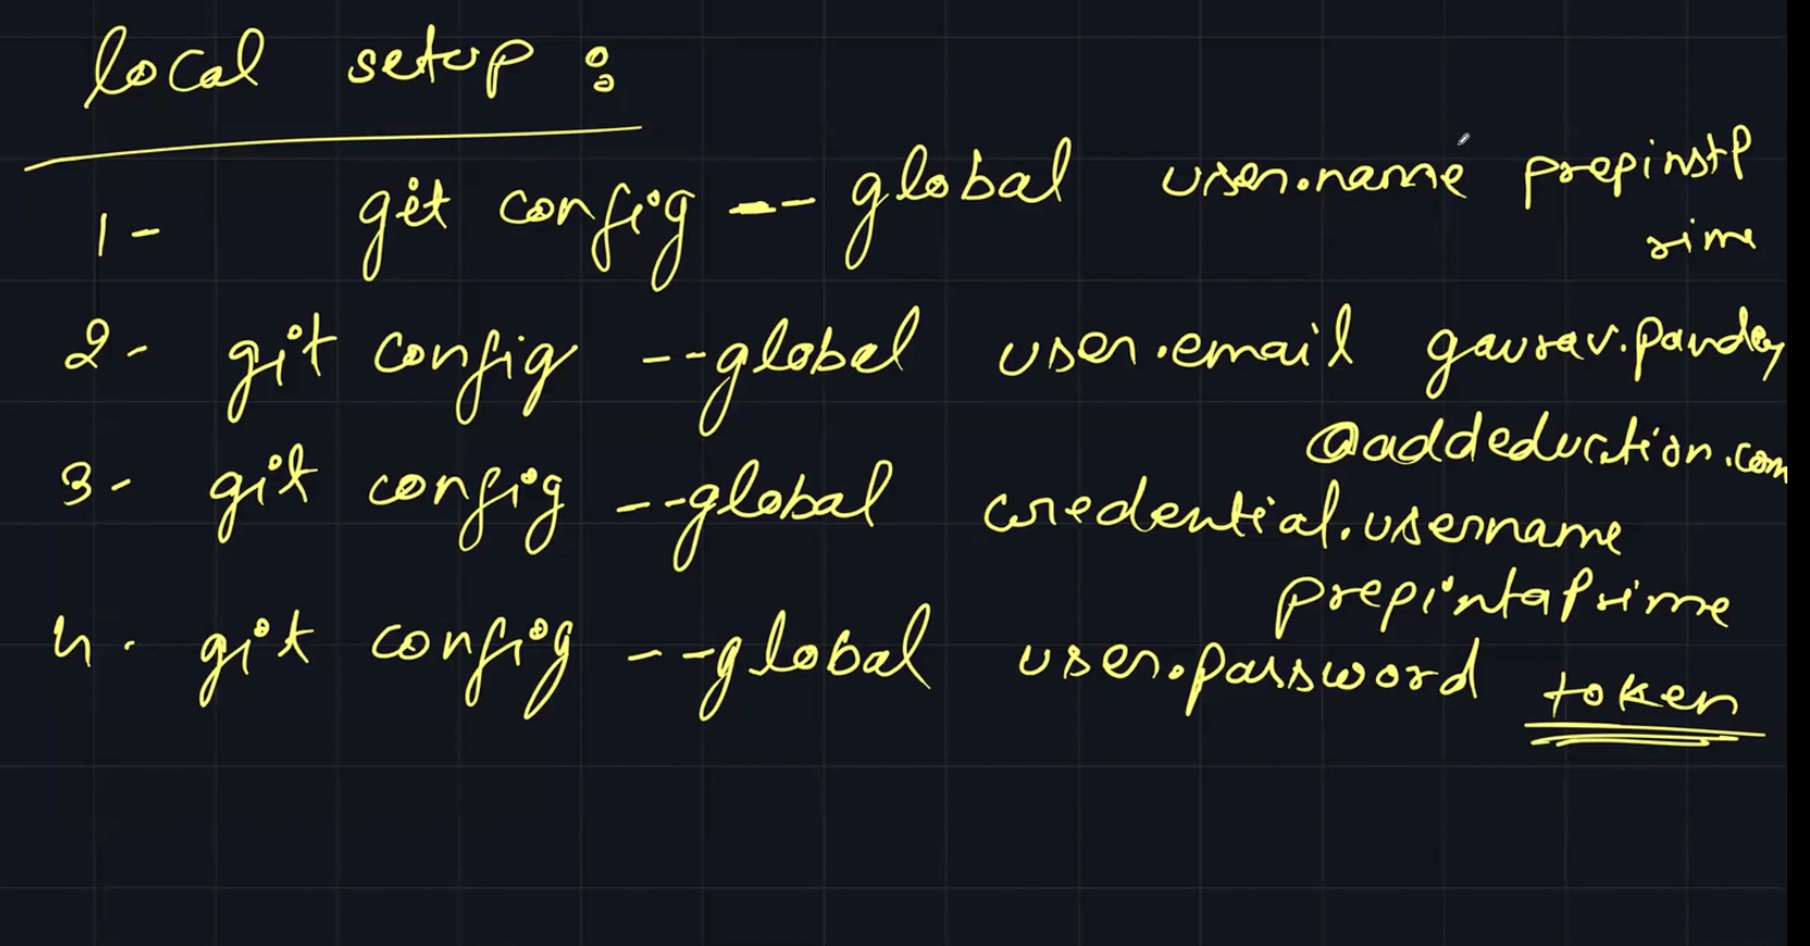 local setup :
1- git config -- global user.name prepinstP
rime
2- git config --global user.email gaurav.pandey
@addeduction.com
3- git config --global credential.username
prepintaPrime
4. git config --global user.password token